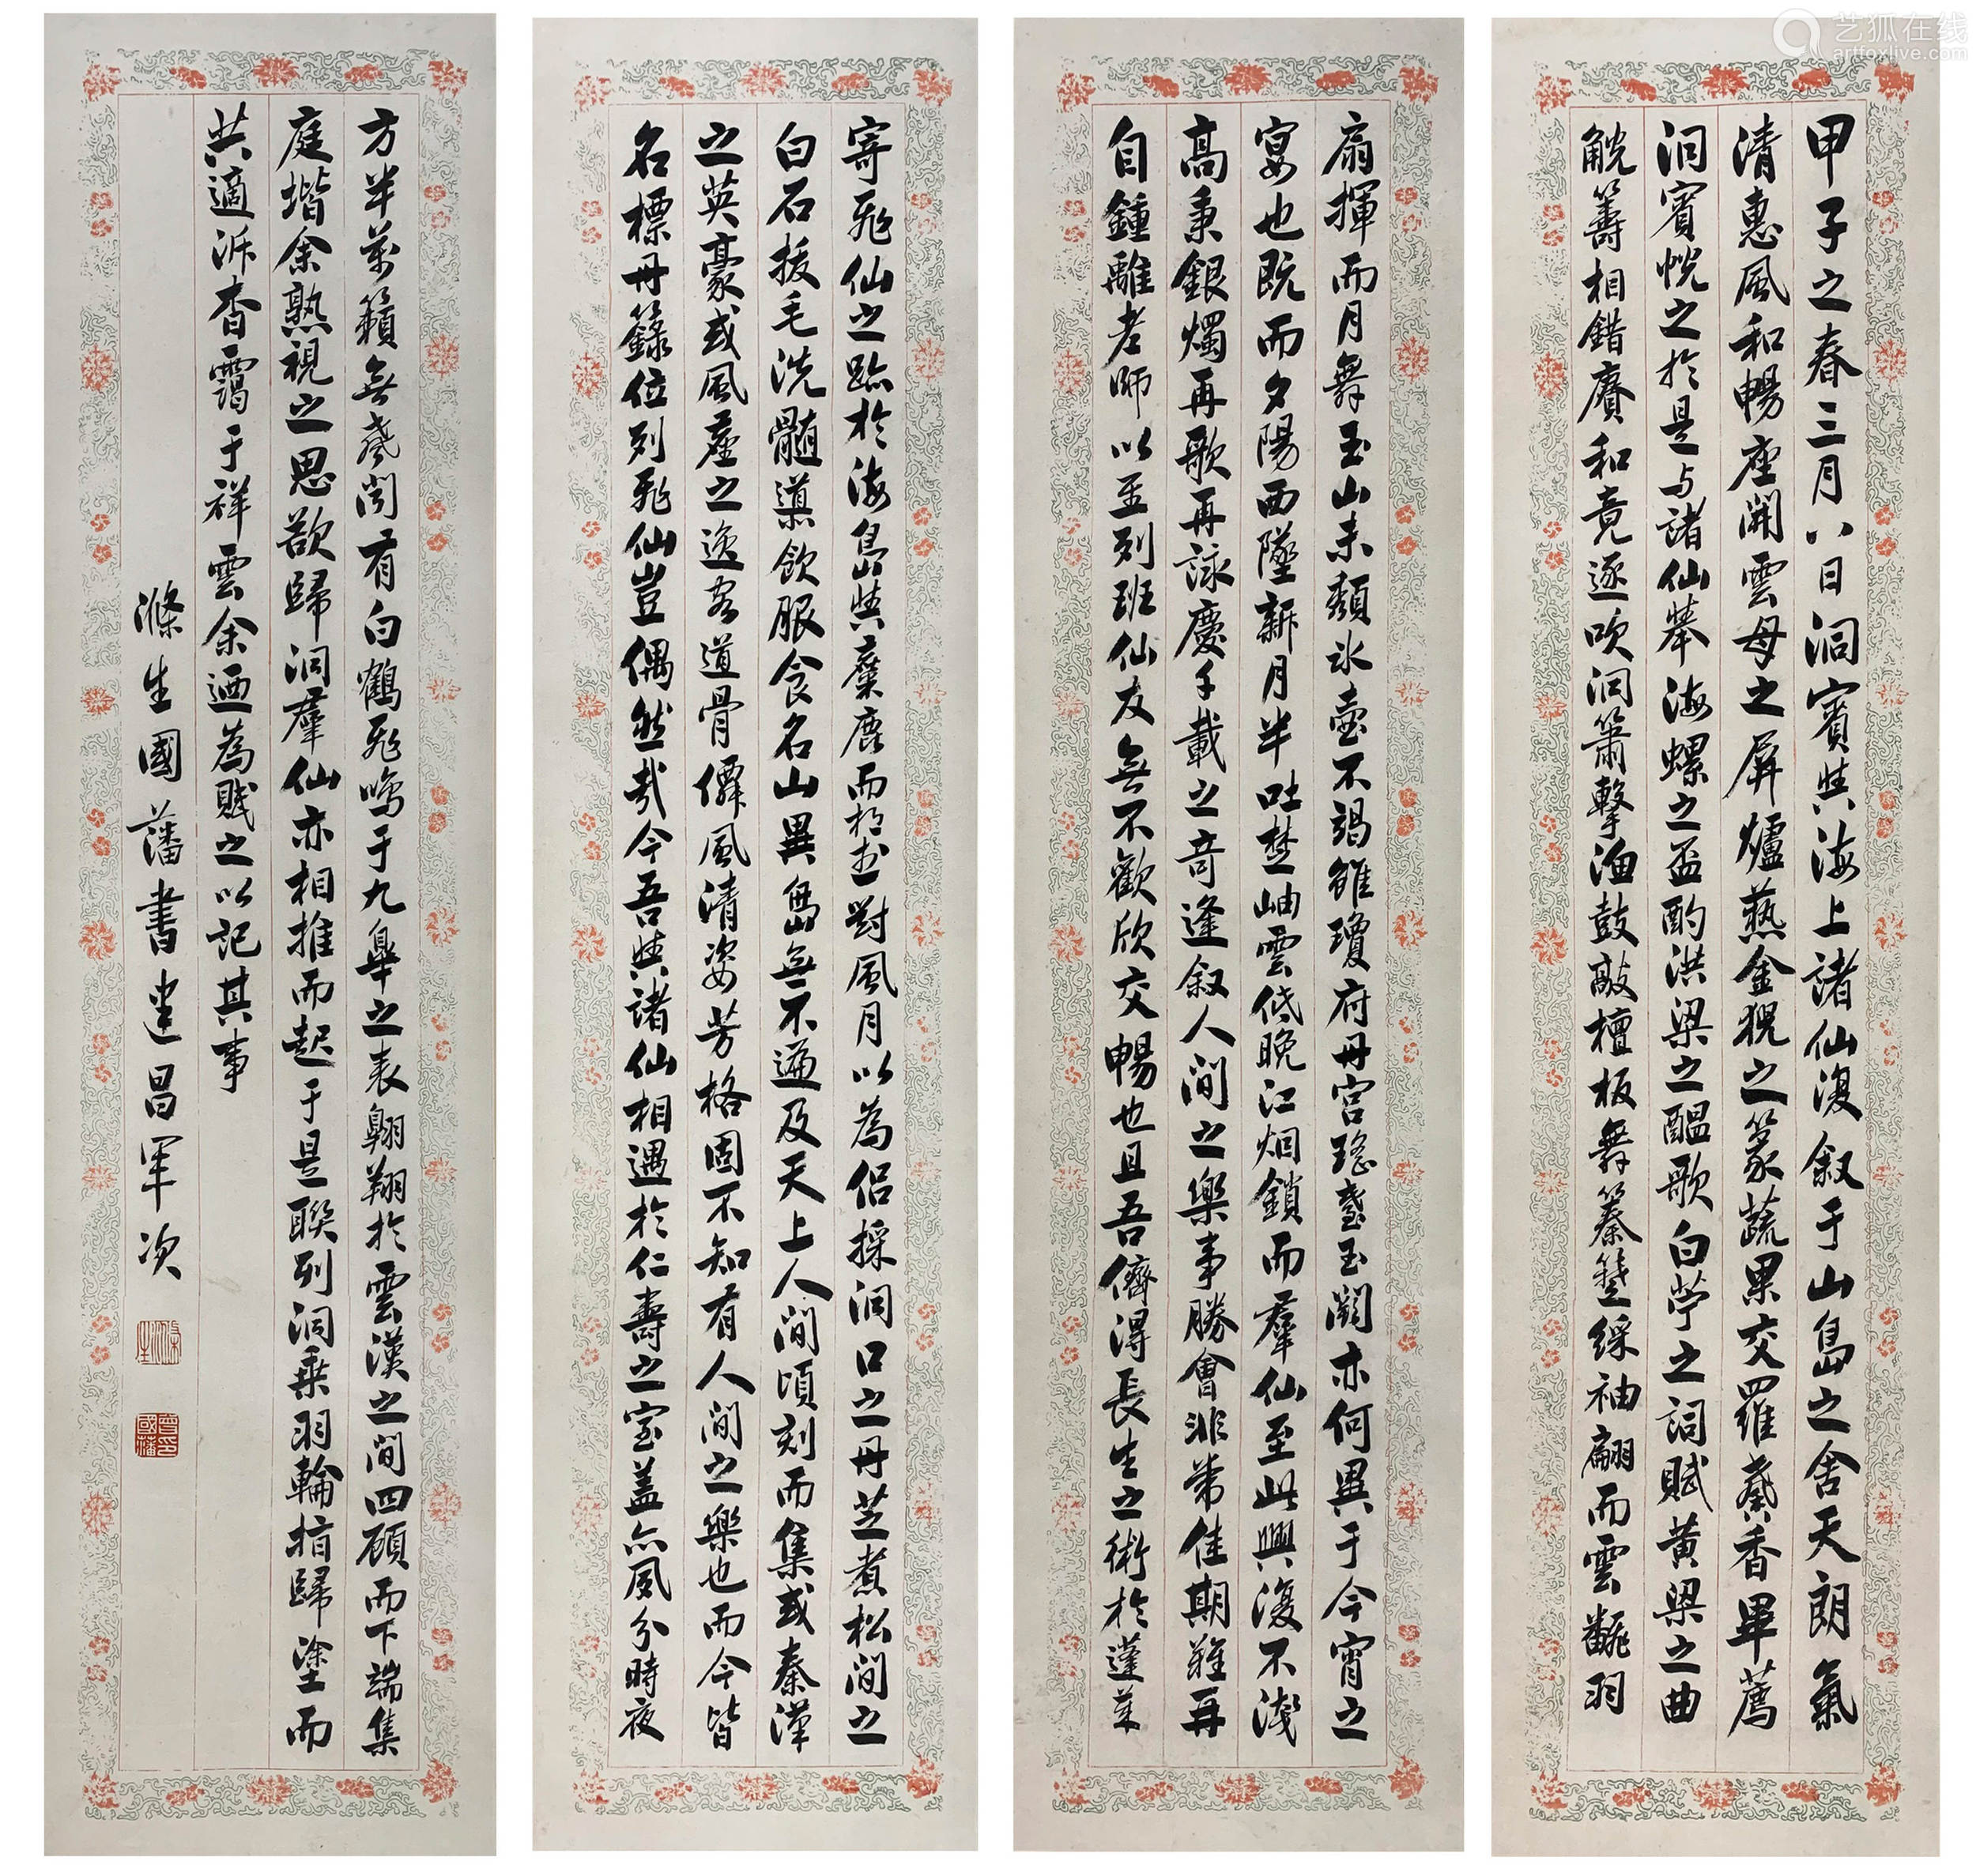 甲子之春三月八日洞賓與海上諸仙復叙于山島之舍天朗氣
清惠風和暢座開雲母之屏爐爇金猊之篆蔬果交羅薰香畢薦
洞賓悅之於是与諸仙舉海螺之盃酌洪梁之醞歌白苧之詞賦黃梁之曲
觥籌相錯賡和竟逐吹洞簫擊漁鼓敲檀板舞蓁簦綵袖翩而雲飜羽
扇揮而月舞玉山未頹氷壺不竭雖瓊府丹宮瑤臺玉闕亦何異于今宵之
宴也既而夕陽西墜新月半吐楚岫雲低晚江烟鎖而羣仙至此興復不淺
高秉銀燭再歌再詠慶千載之奇逢叙人間之樂事勝會非常佳期難再
自鍾離老師以至列班仙友無不歡欣交暢也且吾儕得長生之術於蓬萊
寄飛仙之跡於海島與麋鹿而相狎對風月以為侶採洞口之丹芝煮松間之
白石拔毛洗髓澡飲服食名山異島無不遍及天上人間頃刻而集或秦漢
之英豪或風塵之逸客道骨僊風清姿芳格固不知有人間之樂也而今皆
名標丹籙位列飛仙豈偶然哉今吾與諸仙相遇於仁壽之室蓋亦夙分時夜
方半萬籟無聲聞有白鶴飛鳴于九皋之表翱翔於雲漢之間四顧而下端集
庭堦余熟視之思欲歸洞羣仙亦相推而起于是聯列洞乘羽輪指歸塗而
共適泝杳靄于祥雲余迺為賦之以記其事
滌生國藩書建昌軍次
滌生
曾國藩印
艺狐在线
artfoxlive.com